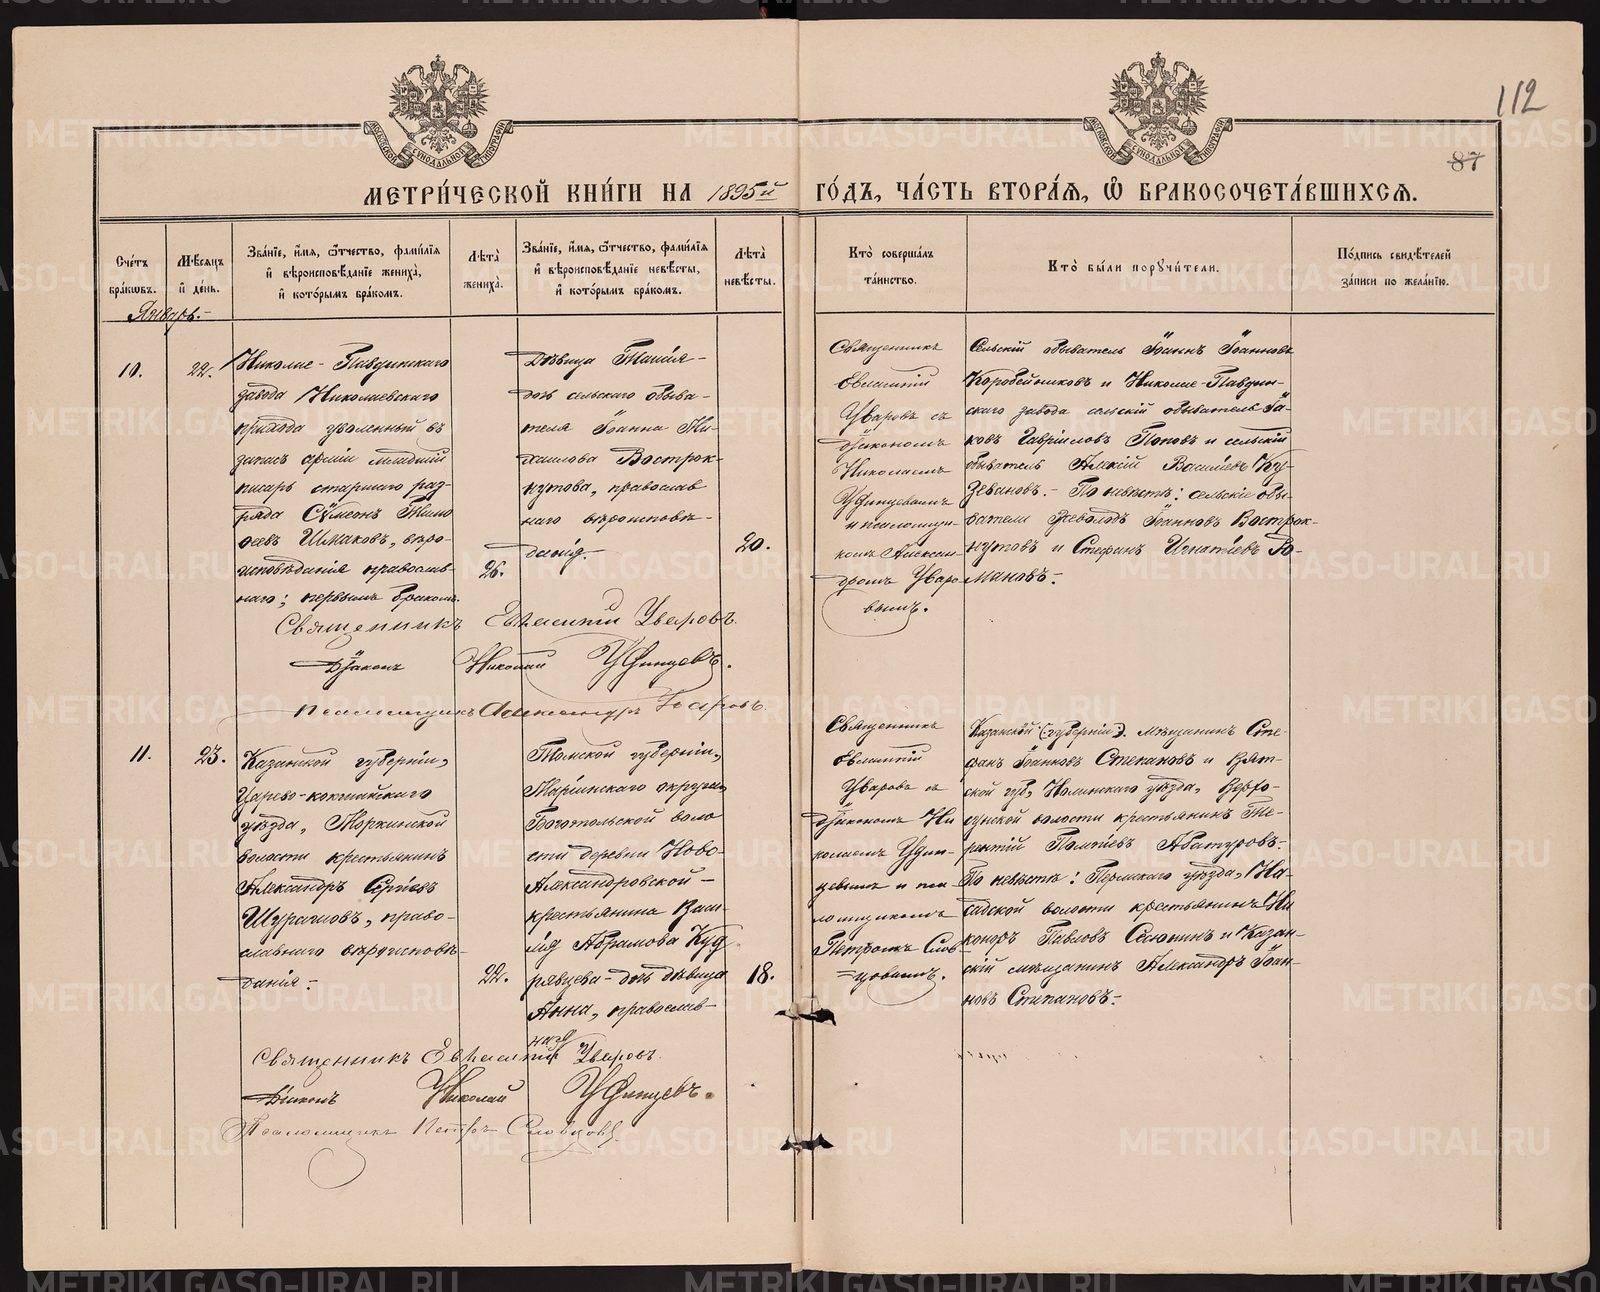 112
87
МЕТРИ́ЧЕСКОЙ КНИ́ГИ НА 1895й ГО́ДЪ, ЧА́СТЬ ВТОРА́Я, Ѽ БРАКОСОЧЕТА́ВШИХСЯ.
Сче́тъ бра́ковъ.
Мѣ́сяцъ и҆ де́нь.
Зва́нїе, и҆́мя, ѻ҆́тчество, фами́лїя
и҆ вѣроисповѣ́данїе жениха̀,
и҆ кото́рымъ бра́комъ.
Лѣта̀ жениха̀.
Зва́нїе, и҆́мя, ѻ҆́тчество, фами́лїя
и҆ вѣроисповѣ́данїе невѣ́сты,
и҆ кото́рымъ бра́комъ.
Лѣта̀ невѣ́сты.
Кто̀ соверша́лъ
та́инство.
Кто̀ бы́ли порꙋчи́тели.
По́дпись свидѣ́телей
за́писи по жела́нїю.
Январь.
10.
22.
Николае-Павдинскаго
завода Николаевскаго
прихода уволенный въ
запасъ арміи младшій
писарь старшаго раз-
ряда Сѵмеонъ Тимо
ѳеевъ Шмаковъ, вѣро-
исповѣданія православ-
наго; первымъ бракомъ.
26.
Дѣвица
дочь сельскаго обыва-
теля Іоанна Ми-
хаилова Вострок-
нутова, православ
наго вѣроисповѣ-
данія.
20.
Священникъ
Евлампій
Уваровъ съ
діакономъ
Николаемъ
Уфинцевымъ
и псаломщи-
комъ Алексан-
дромъ Уваро
вымъ.
Сельскій обыватель Іоаннъ Іоанновъ
Коробейниковъ и Николае-Павдин-
скаго завода сельскій обыватель Іа-
ковъ Гавріиловъ Поповъ и сельскій
обыватель Алексій Василіевъ Ку-
зевановъ. - По невѣстѣ: сельскіе обы-
ватели Всеволодъ Іоанновъ Вострок-
нутовъ и Стефанъ Игнатіевъ Ро-
мановъ.
Священникъ Евлампій Уваровъ.
Діаконъ Николай Уфинцевъ.
Псаломщикъ Александръ Уваровъ.
11.
23.
Казанской губерніи,
Царево-кокшайскаго
уѣзда, Моркинской
волости крестьянинъ
Александръ Сергіевъ
Шургановъ, право-
славнаго вѣроисповѣ-
данія.
22.
Томской губерніи,
Маріинскаго округа,
Боготольской воло
сти деревни Ново-
Александровской -
крестьянина Васи-
лія Абрамова Куд
рявцева - дочь дѣвица
Анна, православ-
наго
18.
Священникъ
Евлампій
Уваровъ съ
діакономъ Ни
колаемъ Уфин-
цевымъ и пса-
ломщикомъ
Петромъ Слов
цовымъ.
Казанской (губерніи). мѣщанинъ Сте-
фанъ Іоанновъ Степановъ и Вят-
ской губ, Нолинскаго уѣзда, Верхо-
сунской волости крестьянинъ Те-
рентій Помпіевъ Абатуровъ.
По невѣстѣ: Пермскаго уѣзда, На-
садской волости крестьянинъ Ни
каноръ Павловъ Селюнинъ и Казан-
скій мѣщанинъ Александръ Іоан-
новъ Степановъ.
Священникъ Евлампій Уваровъ.
Діаконъ Николай Уфинцевъ.
Псаломщикъ Петръ Словцовъ.
METRIKI.GASO-URAL.RU